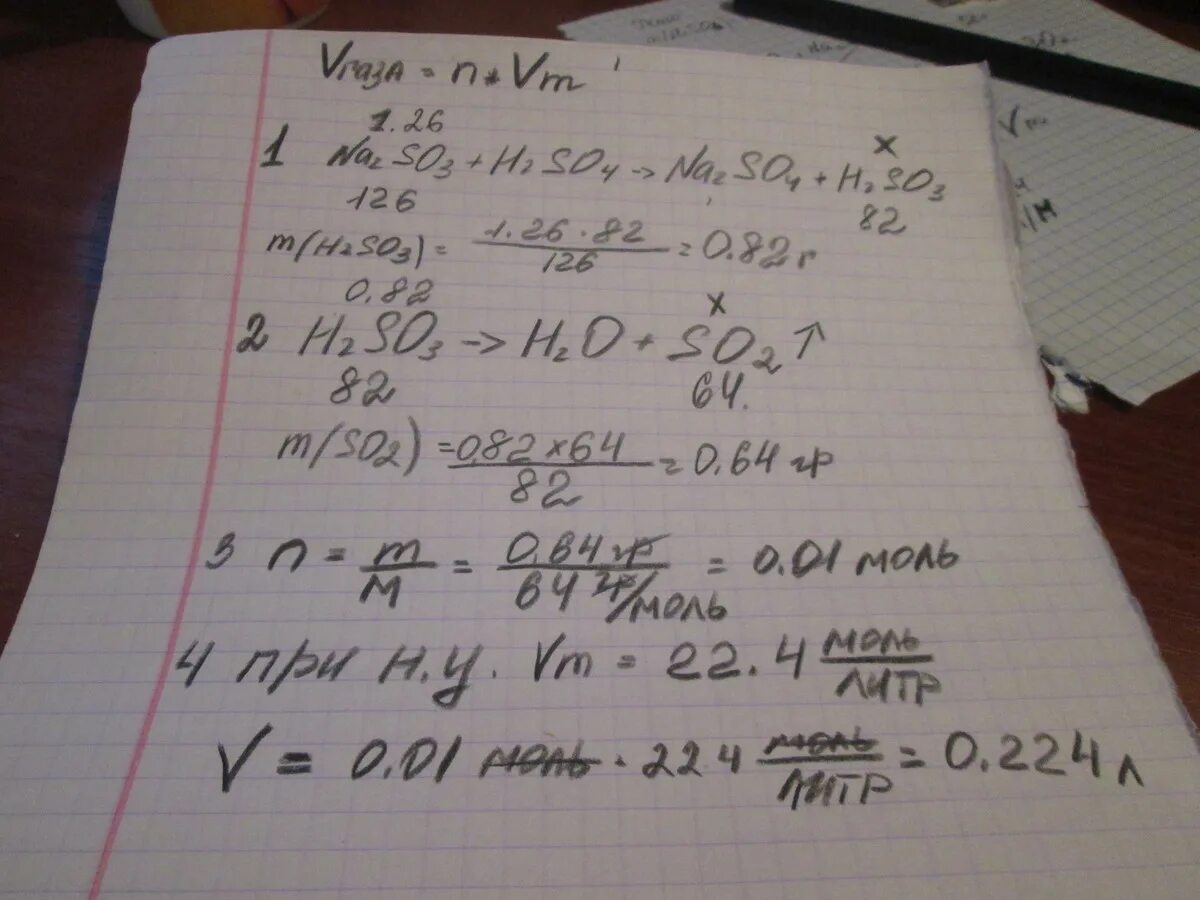 Vгаза = n * Vm
1.26 x
1 Na₂SO₃ + H₂SO₄ -> Na₂SO₄ + H₂SO₃
126 82
m(H₂SO₃) = 1.26 · 82 / 126 = 0.82 г
0.82 x
2 H₂SO₃ -> H₂O + SO₂ ↑
82 64.
m(SO₂) = 0.82 x 64 / 82 = 0.64 гр
3 n = m / M = 0.64 гр / 64 гр/моль = 0.01 моль
4 при н.у. Vm = 22.4 моль / литр
V = 0.01 моль · 22 4 моль / литр = 0.224 л
Vm